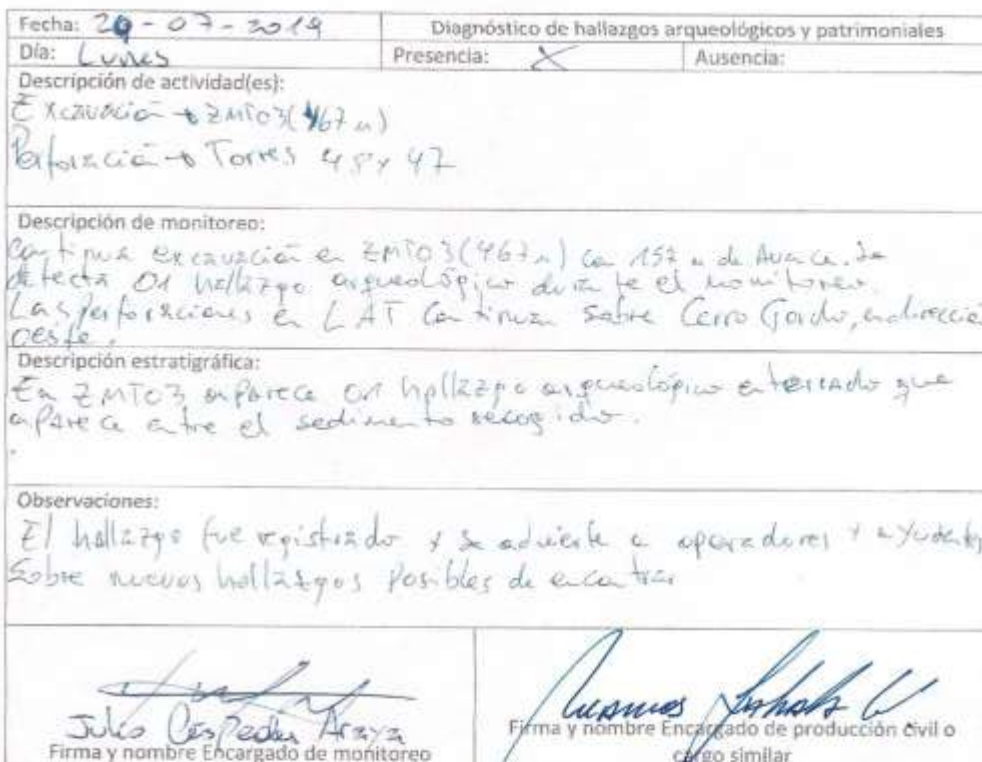 Fecha: 29-07-2019 Diagnóstico de hallazgos arqueológicos y patrimoniales
Día: Lunes Presencia: X Ausencia:
Descripción de actividad(es):
Excavación → ZMT03 (467 m)
Perforación → Torres 45 y 47
Descripción de monitoreo:
Continua excavación en ZMT03 (467 m) con 157 m de Avance. Se
detecta 01 hallazgo arqueológico durante el monitoreo.
Las perforaciones en LAT Continuan sobre Cerro Gordo, en dirección
oeste.
Descripción estratigráfica:
En ZMT03 aparece 01 hallazgo arqueológico enterrado que
aparece entre el sedimento recogido.
Observaciones:
El hallazgo fue registrado y se advierte a operadores y ayudantes
sobre nuevos hallazgos Posibles de encontrar
Julio Cespedes Araya
Firma y nombre Encargado de monitoreo
Firma y nombre Encargado de producción civil o
cargo similar